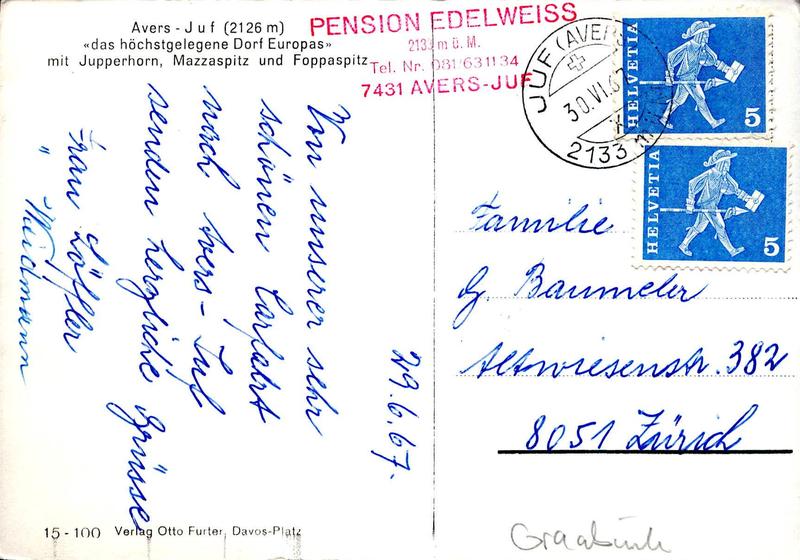 Avers - Juf (2126 m)
«das höchstgelegene Dorf Europas»
mit Jupperhorn, Mazzaspitz und Foppaspitz
PENSION EDELWEISS
2133 m ü. M.
Tel. Nr. 081/631134
7431 AVERS-JUF
JUF (AVERS)
30.VI.67
2133 m
HELVETIA
5
HELVETIA
5
29.6.67.
Von unserer sehr
schönen Carfahrt
nach Avers-Juf
senden herzliche Grüsse
Frau Löffler
" Weidmann
Familie
G. Baumeler
Altwiesenstr. 382
8051 Zürich
15-100 Verlag Otto Furter, Davos-Platz